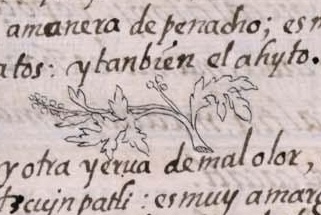 amanera de penacho; es m
atos: ytanbién el ahyto.
y otra yerua de mal olor,
tzcuynpatli: es muy amarg